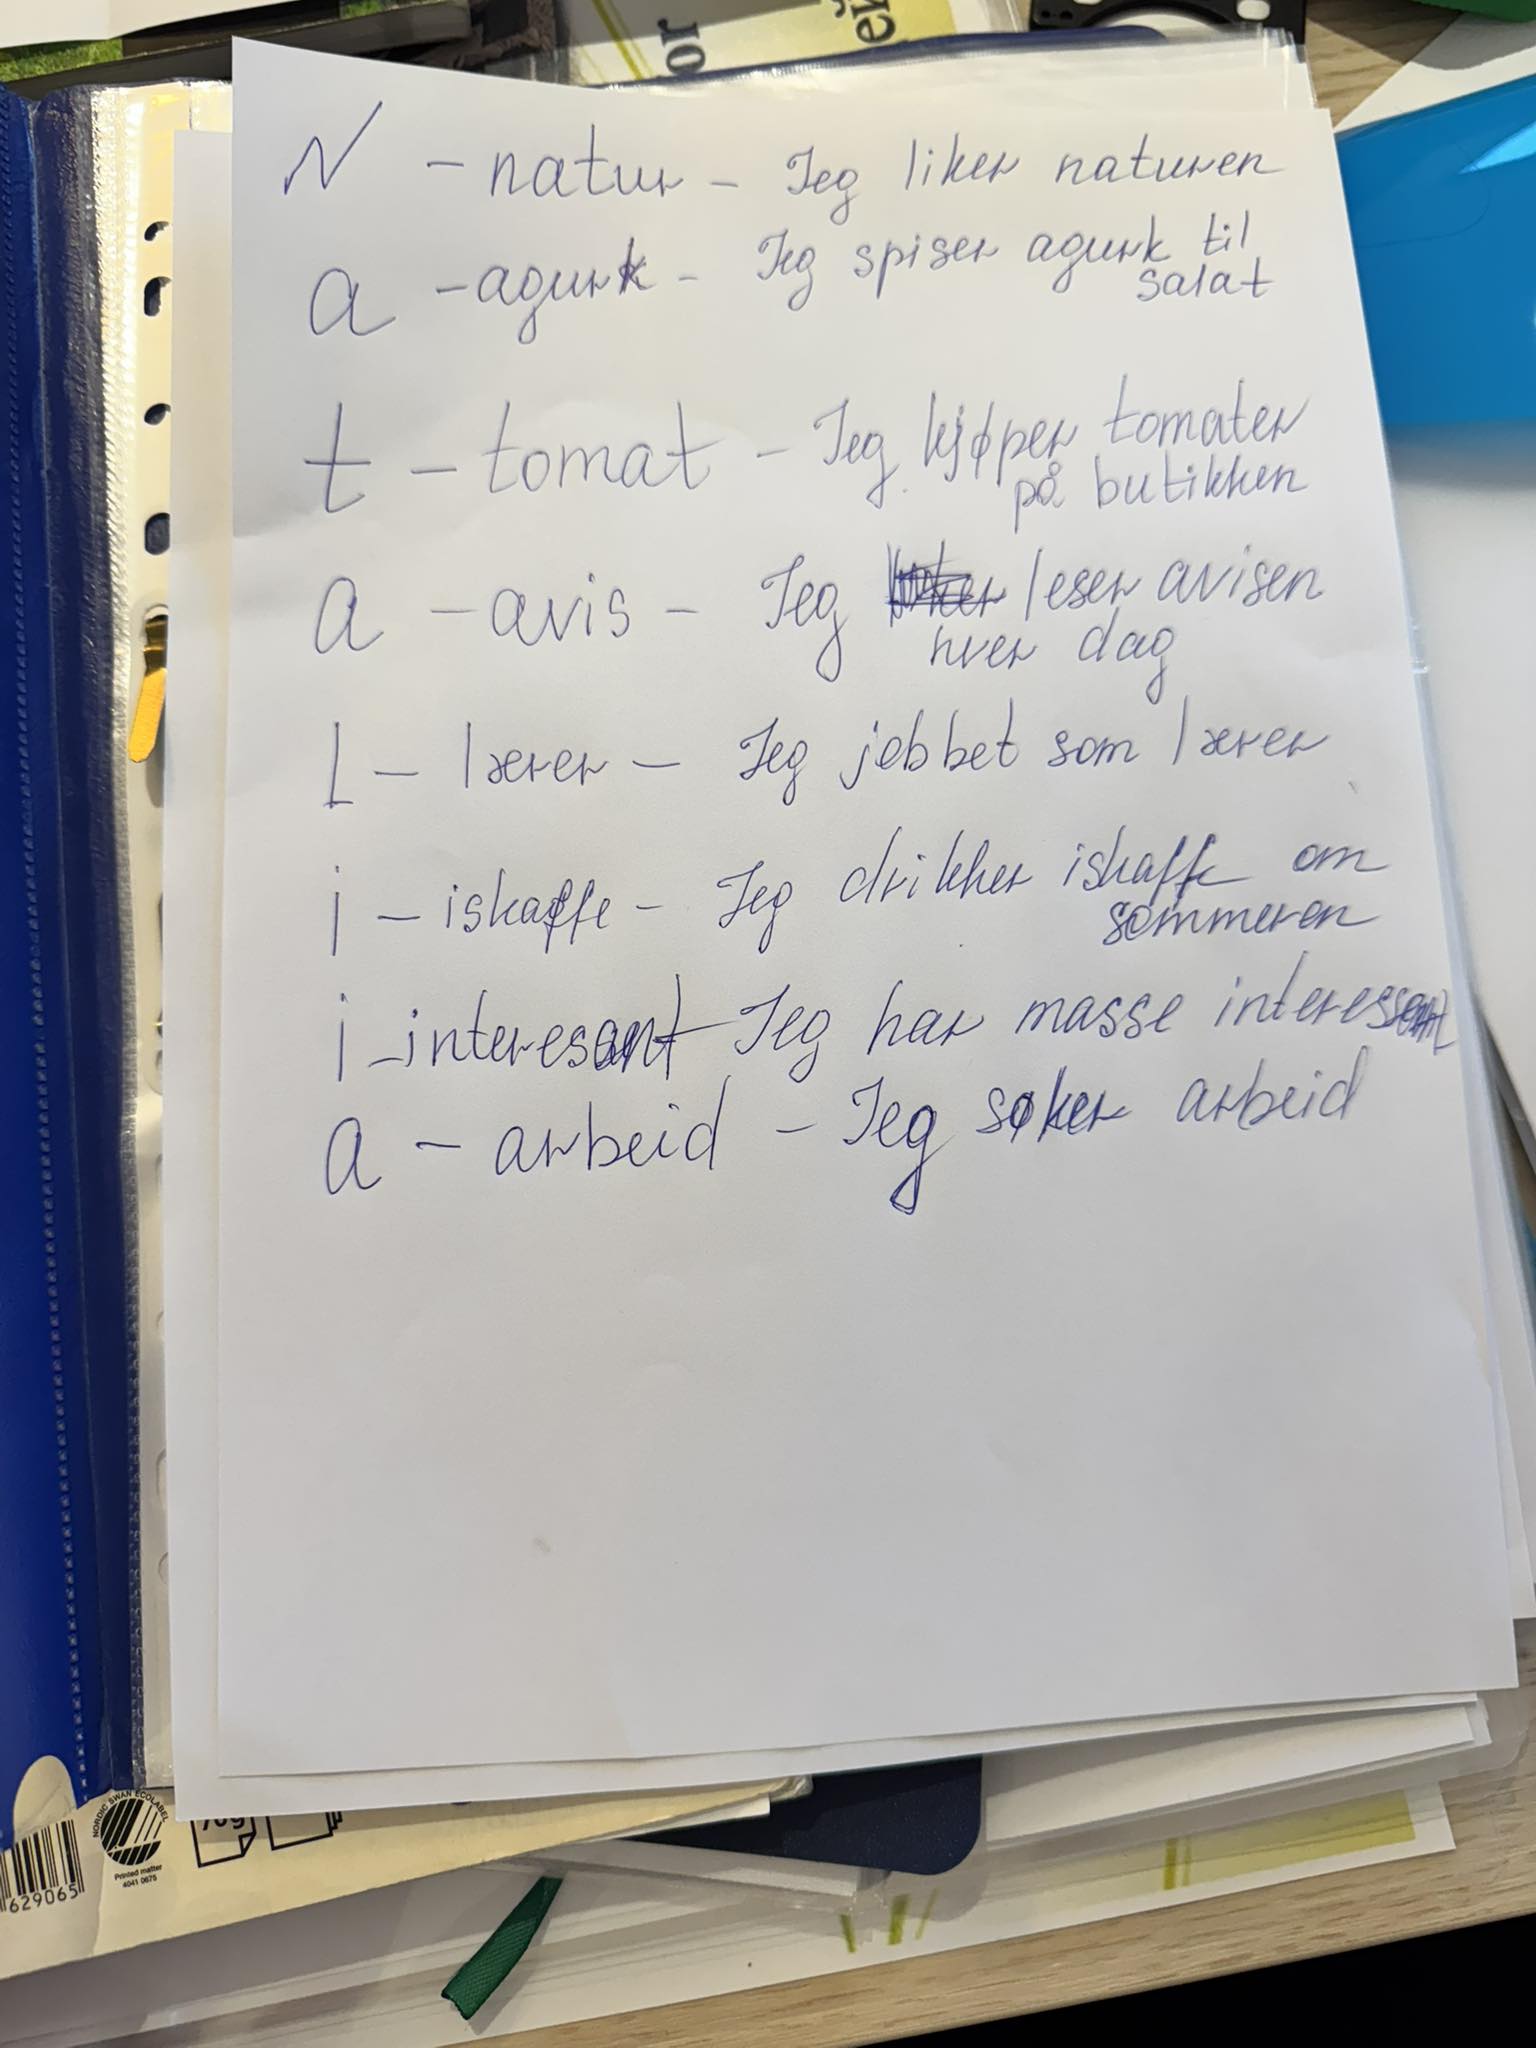 or
N - natur - Jeg liker naturen
a - agurk - Jeg spiser agurk til
salat
t - tomat - Jeg kjøper tomater
på butikken
a - avis - Jeg leser avisen
hver dag
L - lærer - Jeg jobbet som lærer
i - iskaffe - Jeg drikker iskaffe om
sommeren
i - interesant Jeg har masse interessent
a - arbeid - Jeg søker arbeid
NORDIC SWAN ECOLABEL
Printed matter
4041 0675
629065